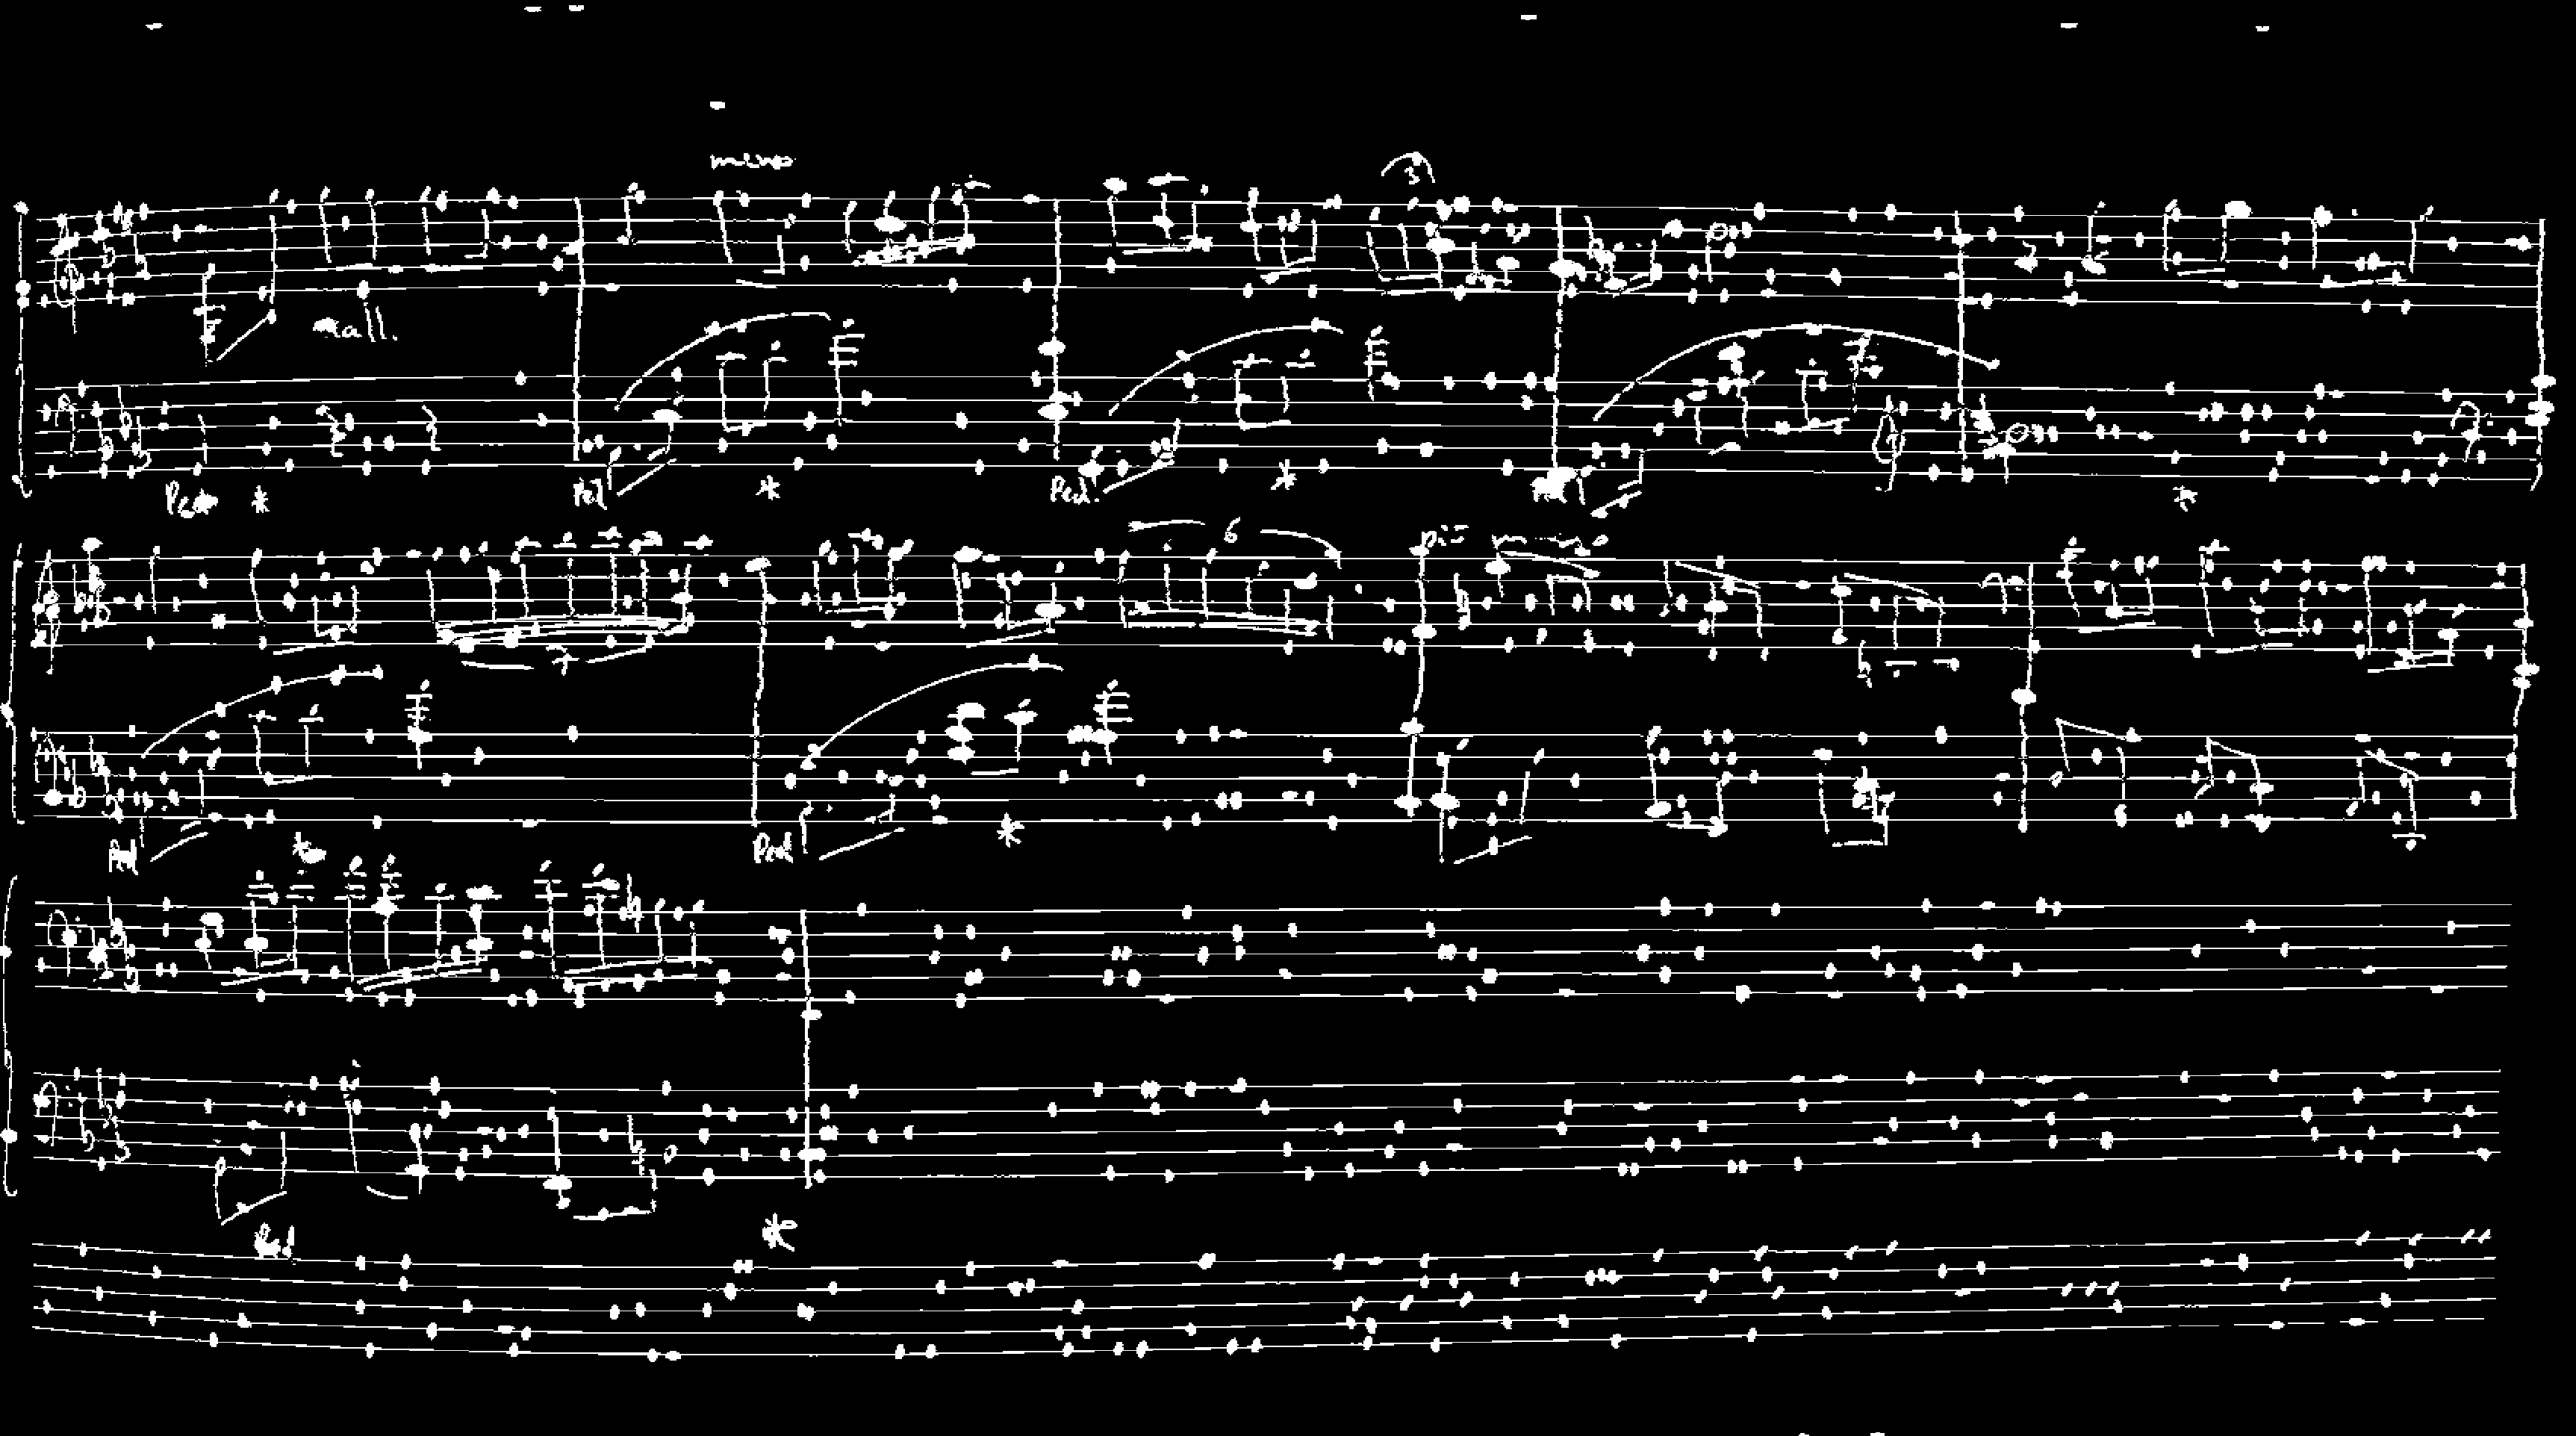 meno
3
rall.
Ped * Ped * Ped. * *
6
più meno
7
Ped * Ped *
Ped *